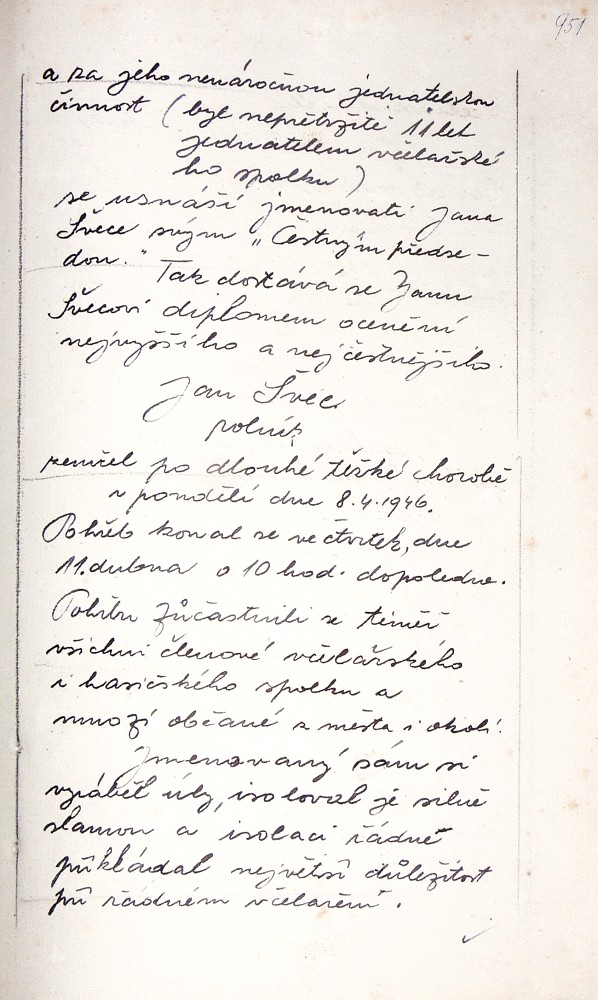 951
a za jeho nenáročnou jednatelskou
činnost (byl nepřetržitě 11 let
jednatelem včelařské
ho spolku)
se usnáší jmenovati Jana
Švece svým „Čestným předse-
dou."
Tak dostává se Janu
Švecovi diplomem ocenění
nejvyššího a nejčestnějšího.
Jan Švec
rolník,
zemřel po dlouhé těžké chorobě
v pondělí dne 8.4.1946.
Pohřeb konal se ve čtvrtek, dne
11. dubna o 10 hod. dopoledne.
Pohřbu zůčastnili se téměř
všichni členové včelařského
i hasičského spolku a
mnozí občané z města i okolí.
Jmenovaný sám si
vyráběl úly, isoloval je silně
slamou a isolaci řádně
přikládal největší důležitost
při řádném včelaření.